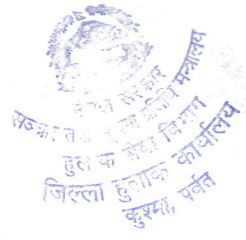 नेपाल सरकार
सञ्चार तथा सूचना प्रविधि मन्त्रालय
हुलाक सेवा विभाग
जिल्ला हुलाक कार्यालय
कुश्मा, पर्वत